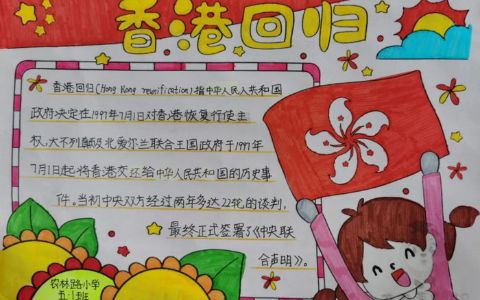 香港回归
香港回归(Hong Kong reunification)指中华人民人共和国
政府决定在1997年7月1日对香港恢复行使主
权,大不列颠及北爱尔兰联合王国政府于1997年
7月1日起将香港交还给中华人民共和国的历史事
件。当初中央双方经过两年多达22轮的谈判,
最终正式签署了《中央联
合声明》。
农林路小学
五.1班